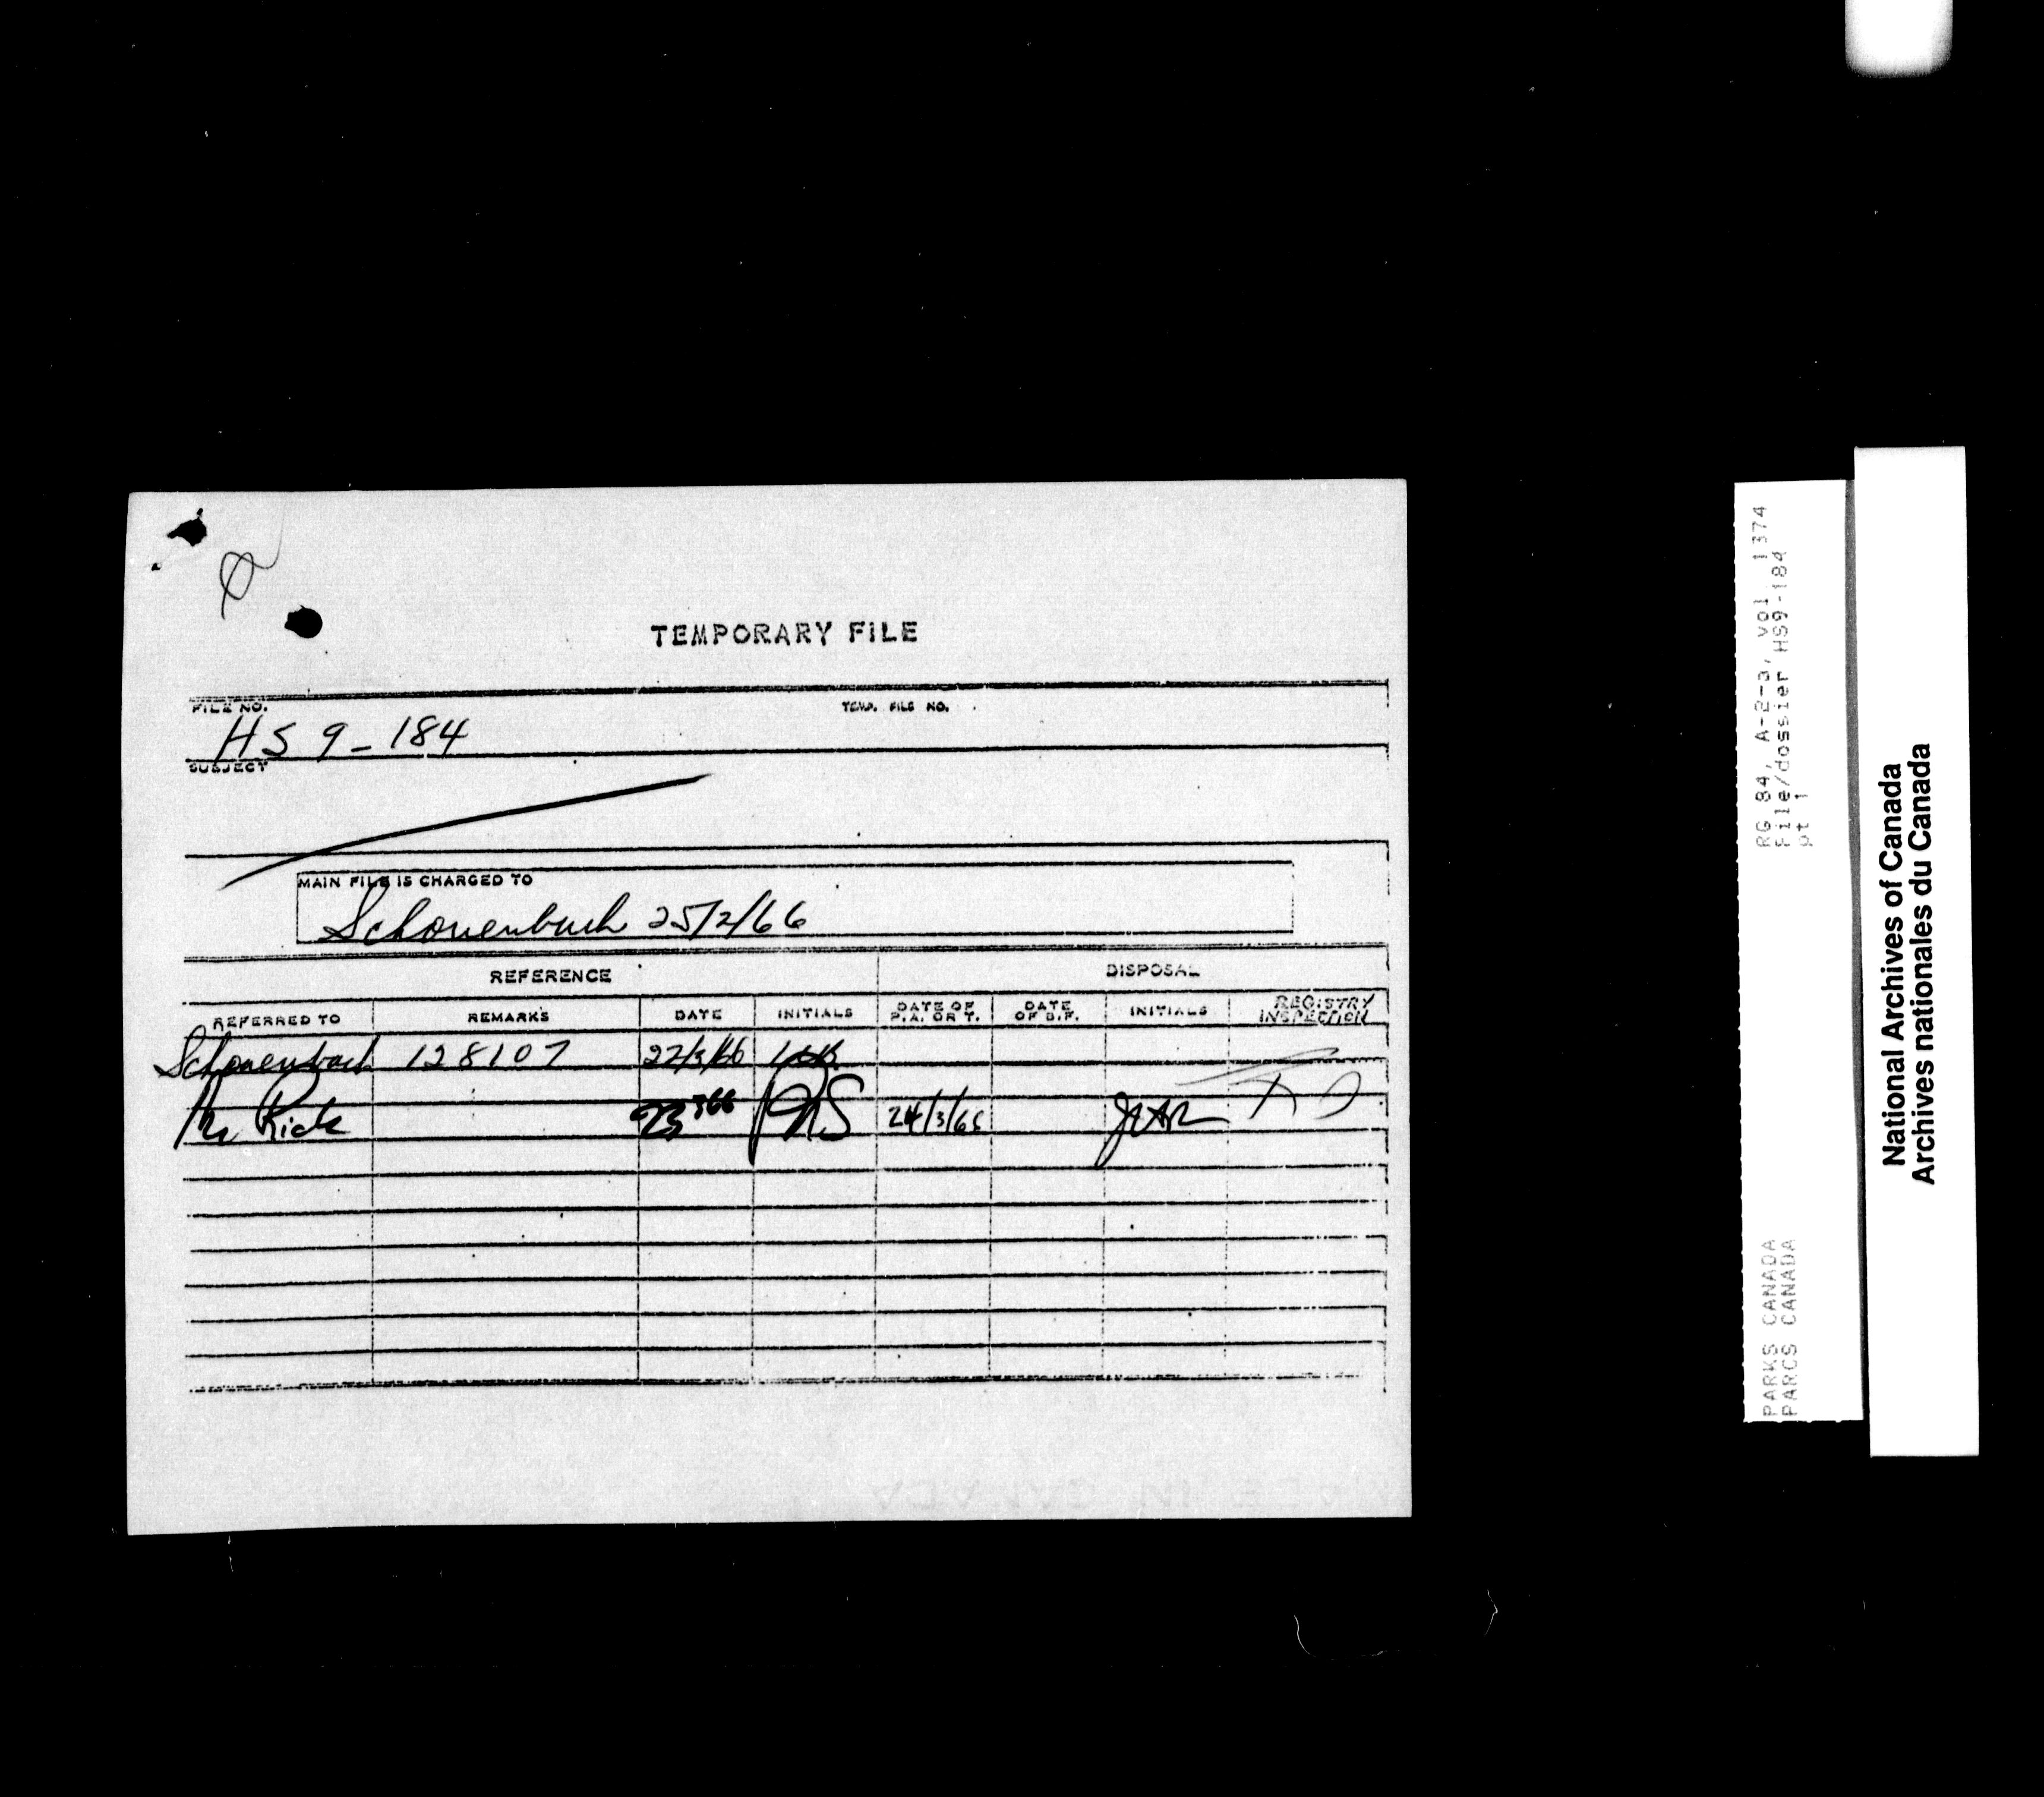 TEMPORARY FILE
FILE NO. TEMP. FILE NO.
HS 9-184
SUBJECT
MAIN FILE IS CHARGED TO
Schonenbach 25/2/66
REFERENCE DISPOSAL
REFERRED TO REMARKS DATE INITIALS DATE OF P.A. OR T. DATE OF B.F. INITIALS REGISTRY INSPECTION
Schonenbach 128107 22/3/66
Mr Rick 24/3/66
RG 84, A-2-a, vol 1374
File/dossier HS9-184
pt 1
PARKS CANADA
PARCS CANADA
National Archives of Canada
Archives nationales du Canada